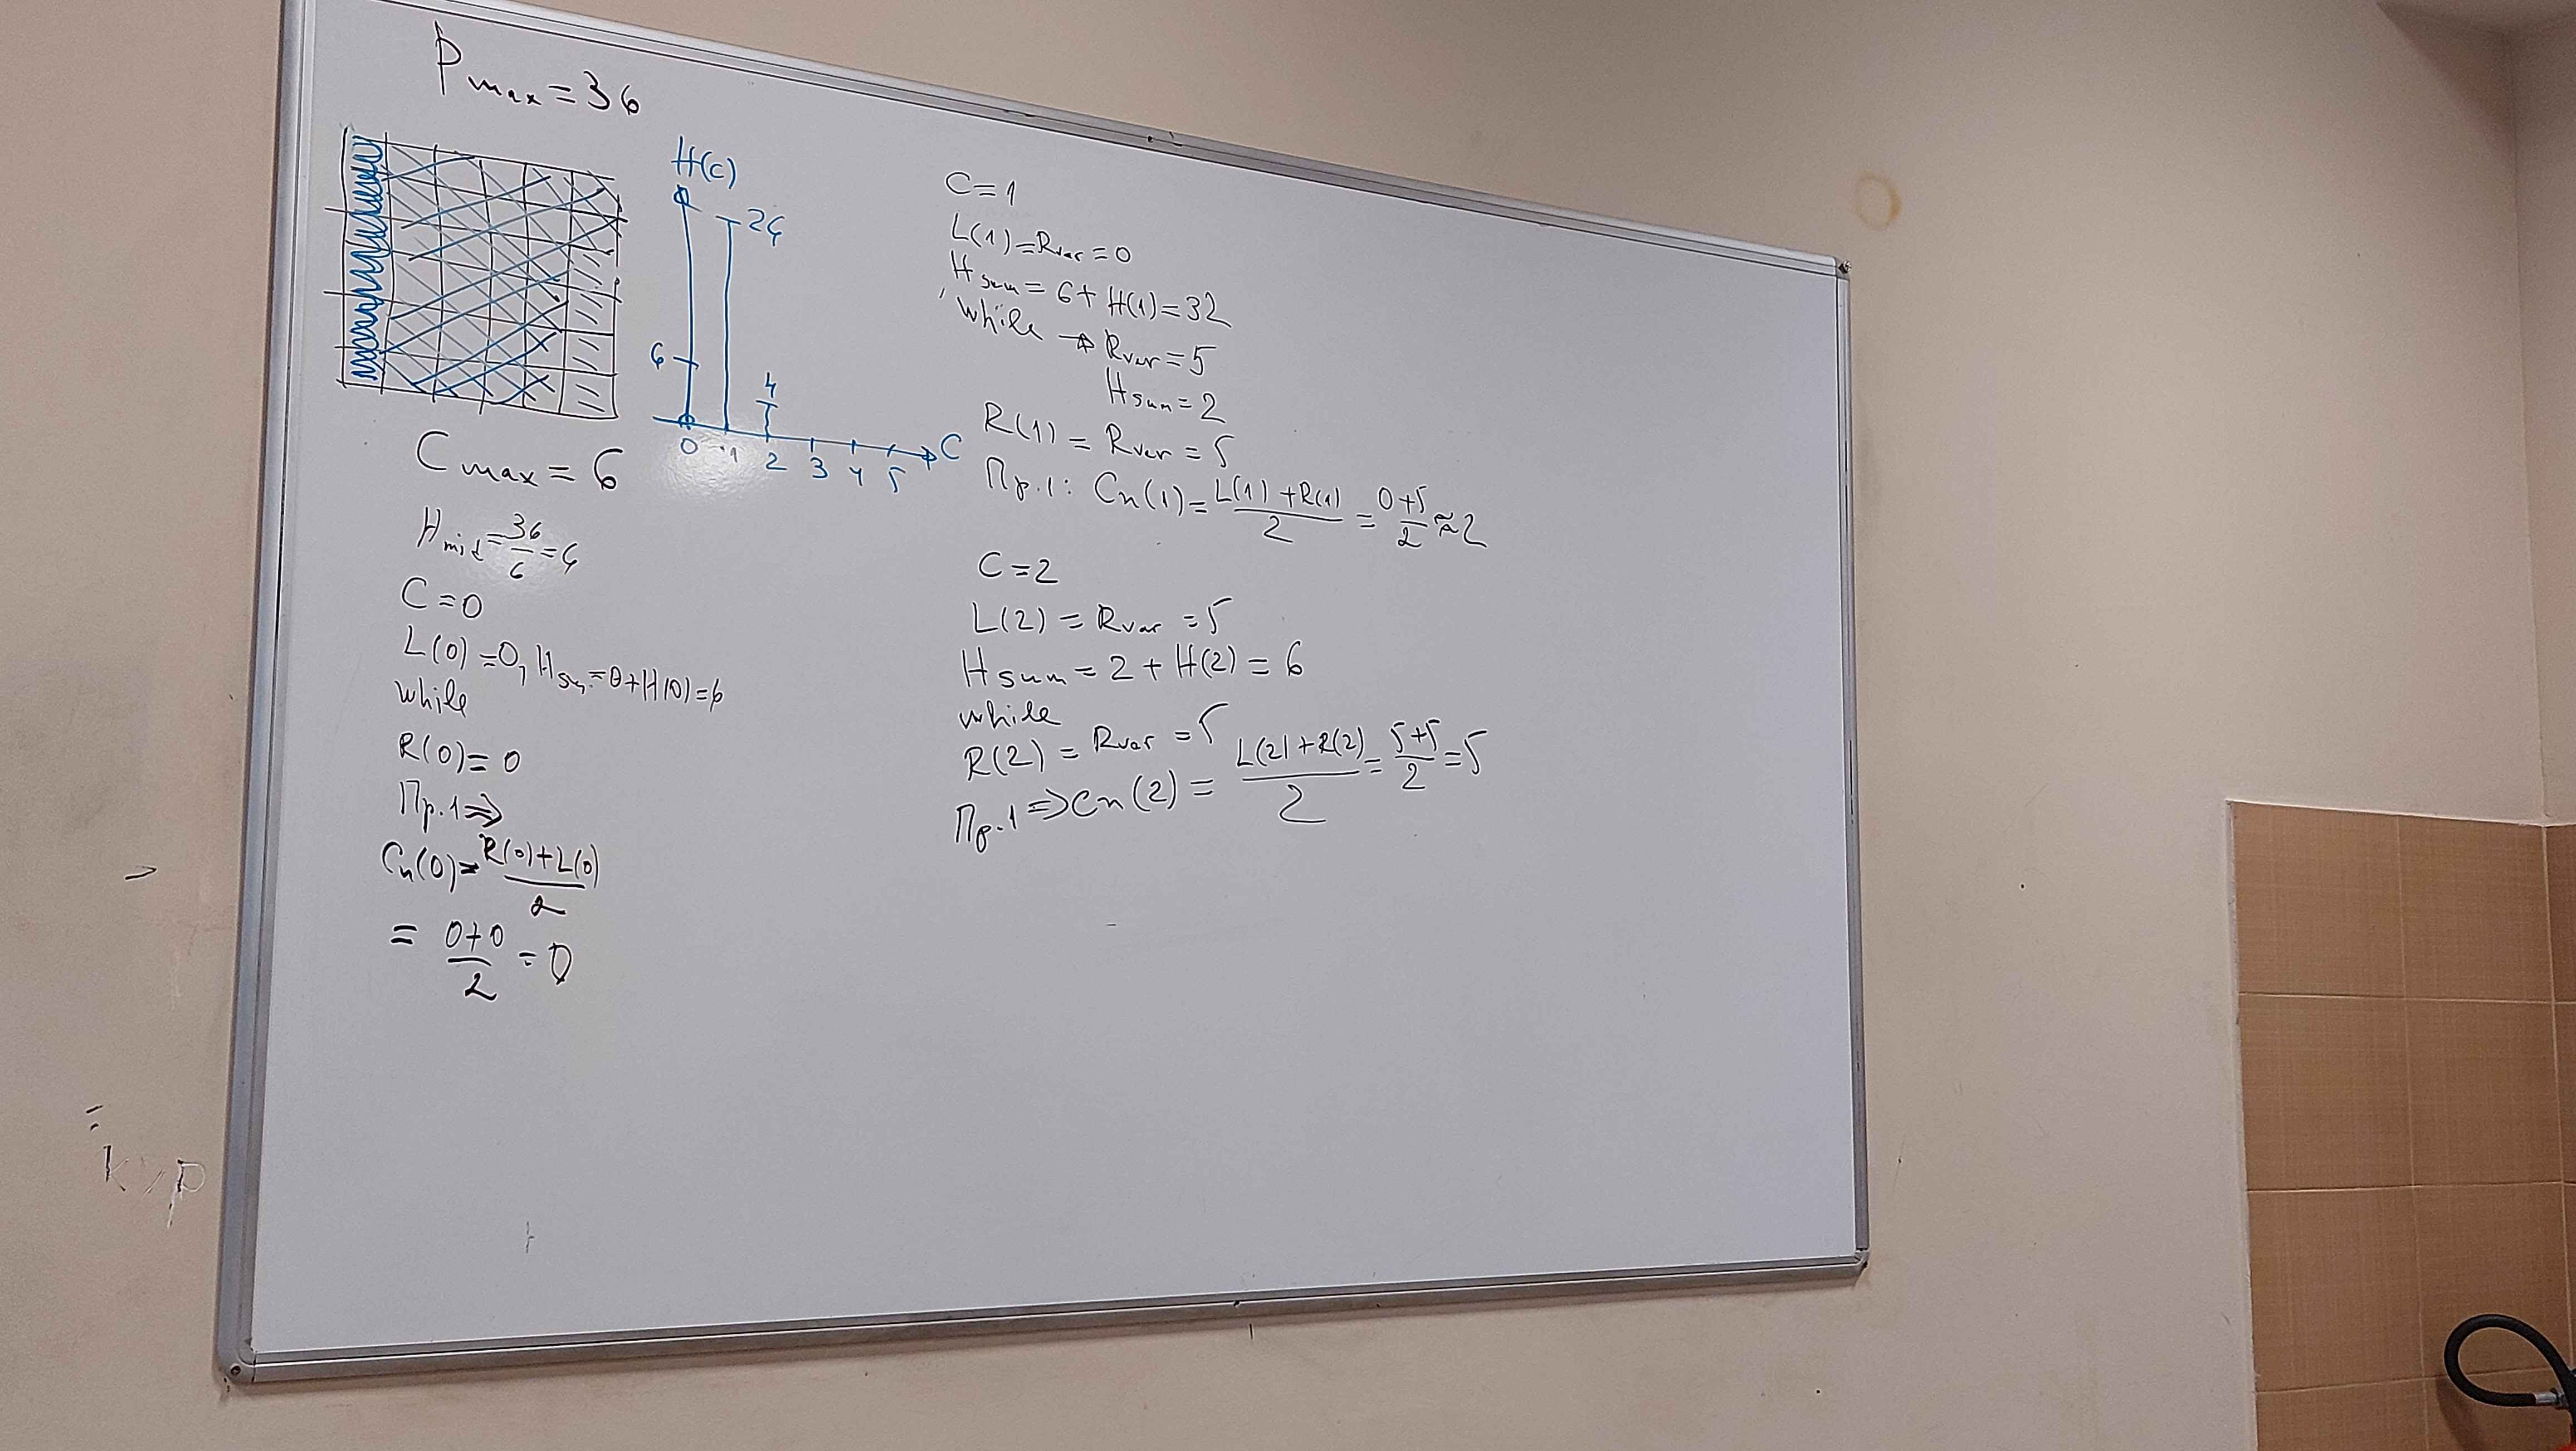 Pmax = 36
H(c)
26
6
4
0 1 2 3 4 5 C
Cmax = 6
Hmid = 36/6 = 6
C = 0
L(0) = 0, Hsum = 0 + H(0) = 6
while
R(0) = 0
Пр.1 ⇒
Cn(0) = (R(0) + L(0))/2
= (0+0)/2 = 0
C = 1
L(1) = Rvar = 0
Hsum = 6 + H(1) = 32
while → Rvar = 5
Hsum = 2
R(1) = Rvar = 5
Пр.1: Cn(1) = (L(1) + R(1))/2 = (0+5)/2 ≈ 2
C = 2
L(2) = Rvar = 5
Hsum = 2 + H(2) = 6
while
R(2) = Rvar = 5
Пр.1 ⇒ Cn(2) = (L(2) + R(2))/2 = (5+5)/2 = 5